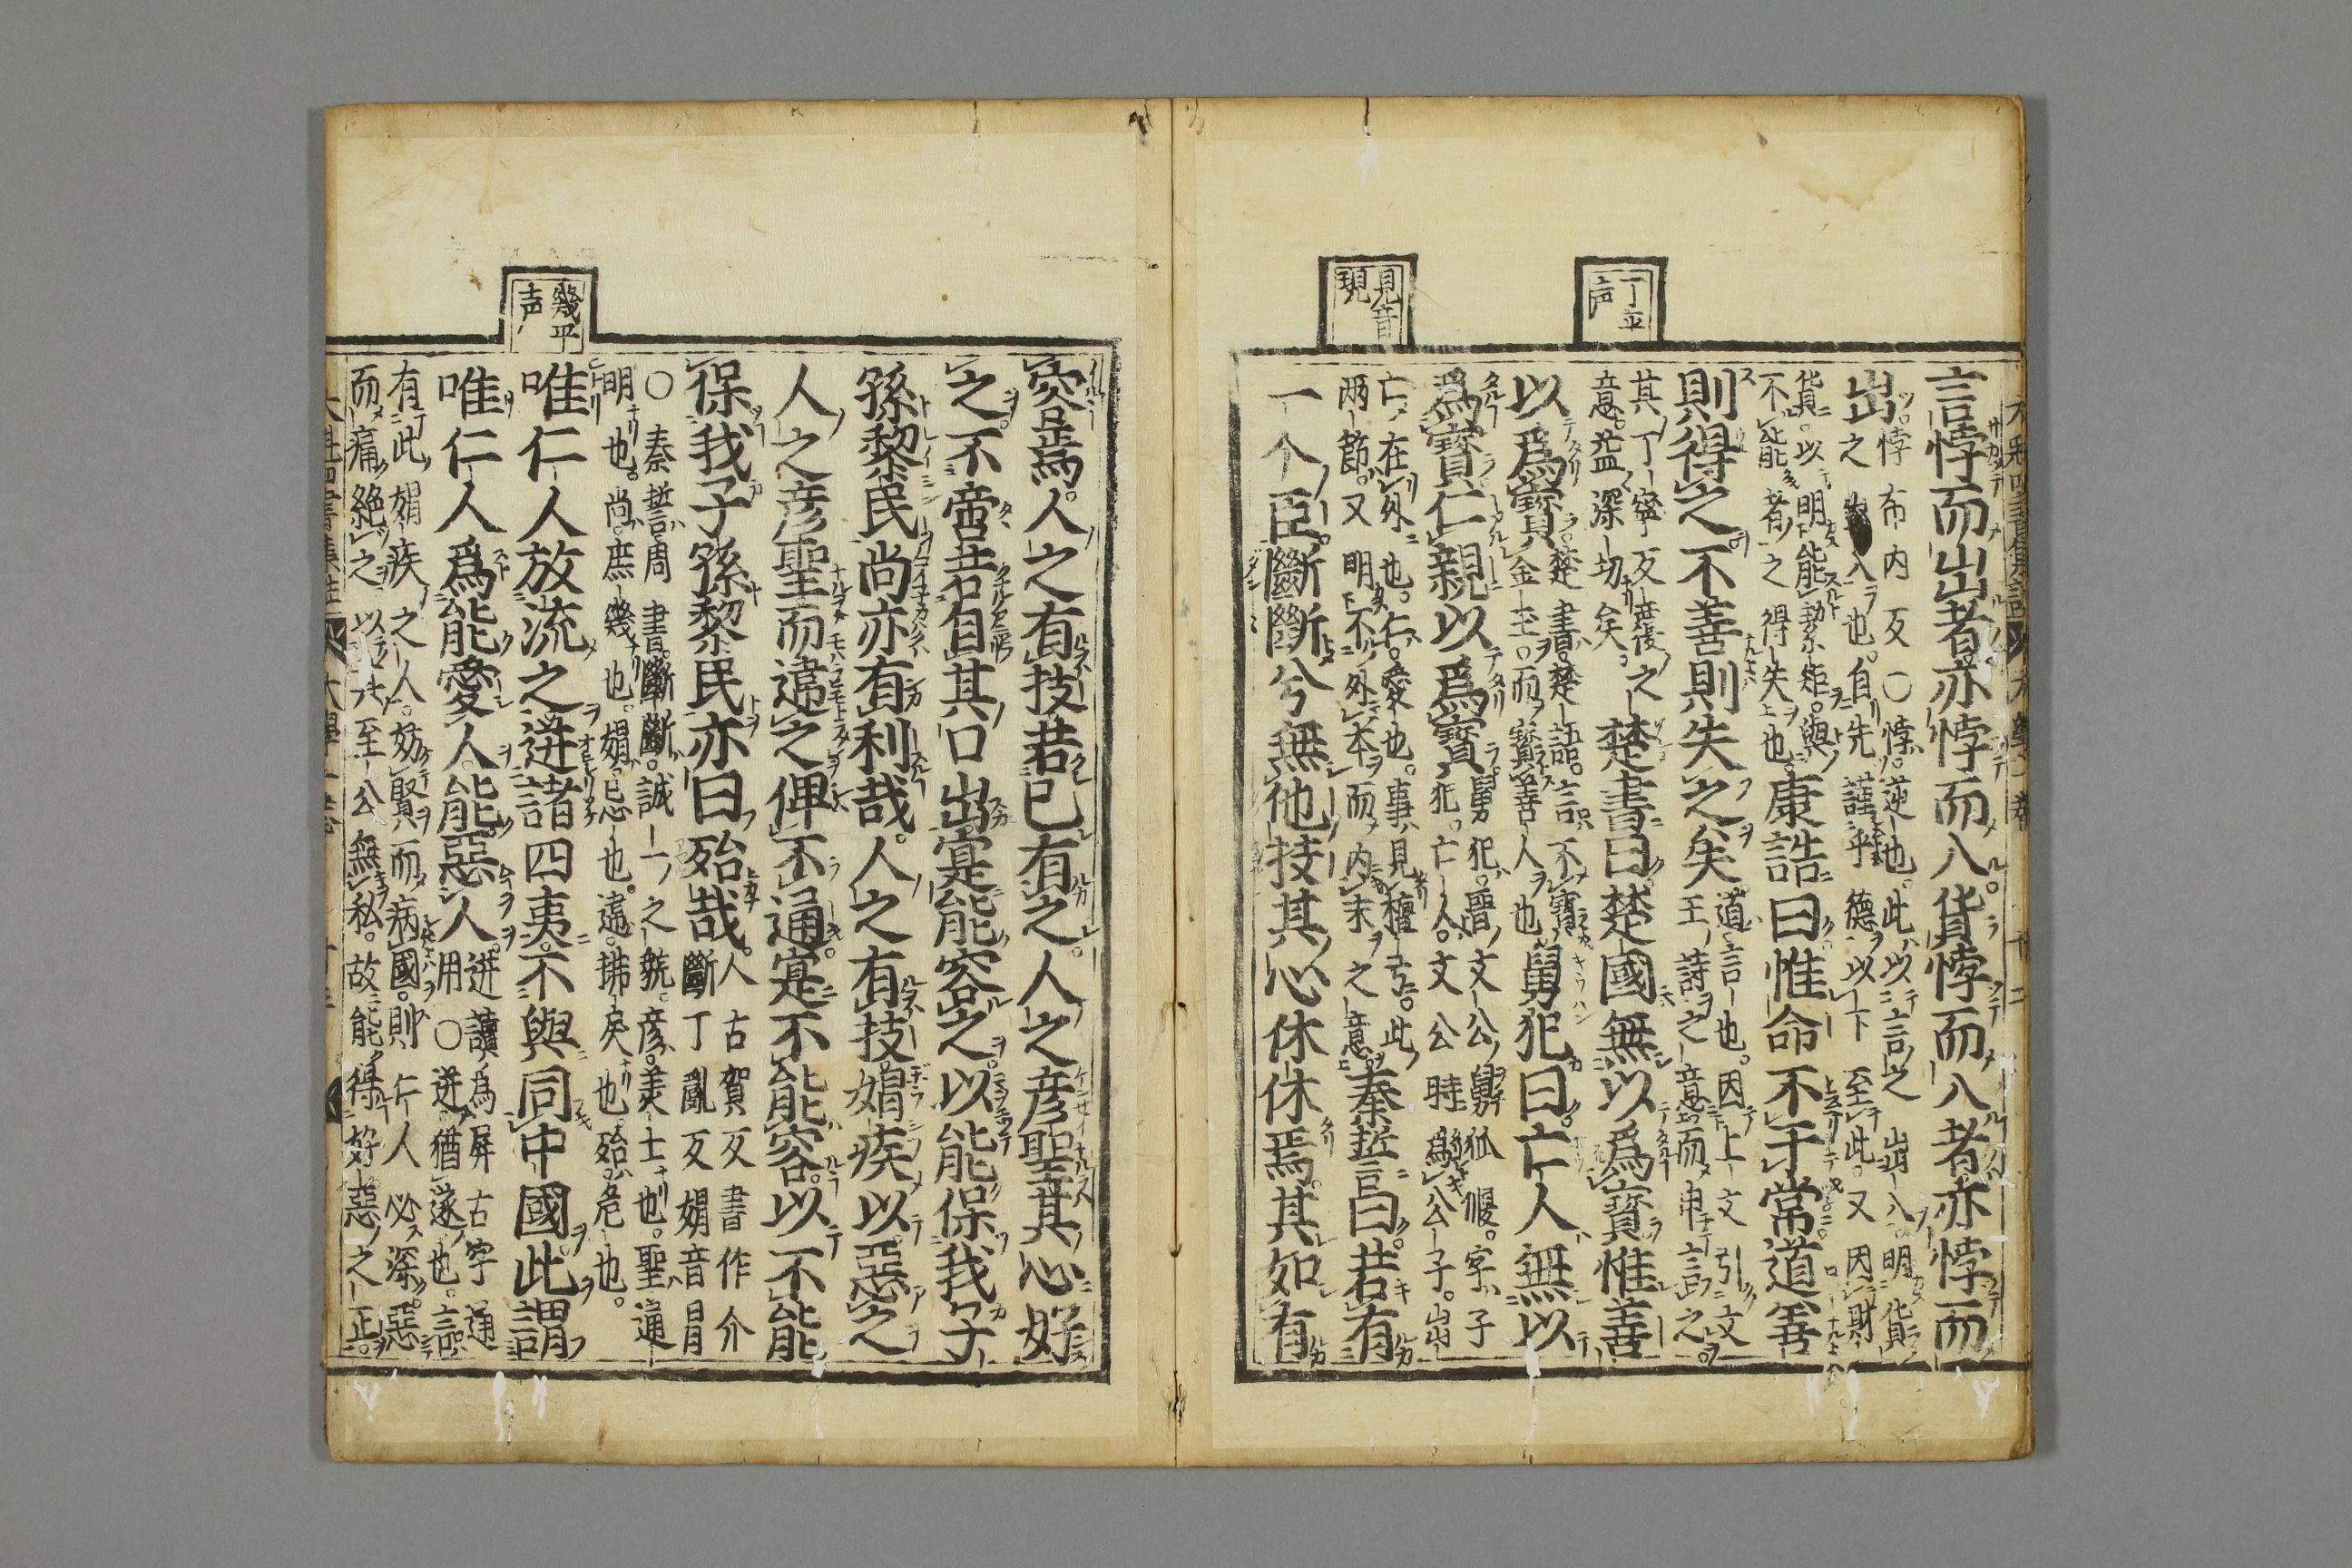 丁平
声
見音
現
言悖而出者亦悖而入貨悖而入者亦悖而
出
悖布内反〇悖逆也此以言之出入明貨
之出入也自先謹乎德以下至此又因財
貨以明能絜矩與
不能者之得失也
康誥曰惟命不于常道善
則得之不善則失之矣
道言也因上文引文
王詩之意而申言之
其丁寧反覆之
意益深切矣
楚書曰楚國無以爲寶惟善
以爲寶
楚書楚語言不寶
金玉而寶善人也
舅犯曰亡人無以
爲寶仁親以爲寶
舅犯晉文公舅狐偃字子
犯亡人文公時爲公子出
亡在外也仁愛也事見檀弓此
兩節又明不外本而内末之意
秦誓曰若有
一个臣斷斷兮無他技其心休休焉其如有
幾平
声
容焉人之有技若己有之人之彦聖其心好
之不啻若自其口出寔能容之以能保我子
孫黎民尚亦有利哉人之有技媢疾以惡之
人之彦聖而違之俾不通寔不能容以不能
保我子孫黎民亦曰殆哉
人古賀反書作介
斷丁亂反媢音冒
〇秦誓周書斷斷誠一之貌彦美士也聖通
明也尚庶幾也媢忌也違拂戾也殆危也
唯仁人放流之迸諸四夷不與同中國此謂
唯仁人爲能愛人能惡人
迸讀爲屏古字通
用〇迸猶逐也言
有此媢疾之人妨賢而病國則仁人必深惡
而痛絶之以其至公無私故能得好惡之正